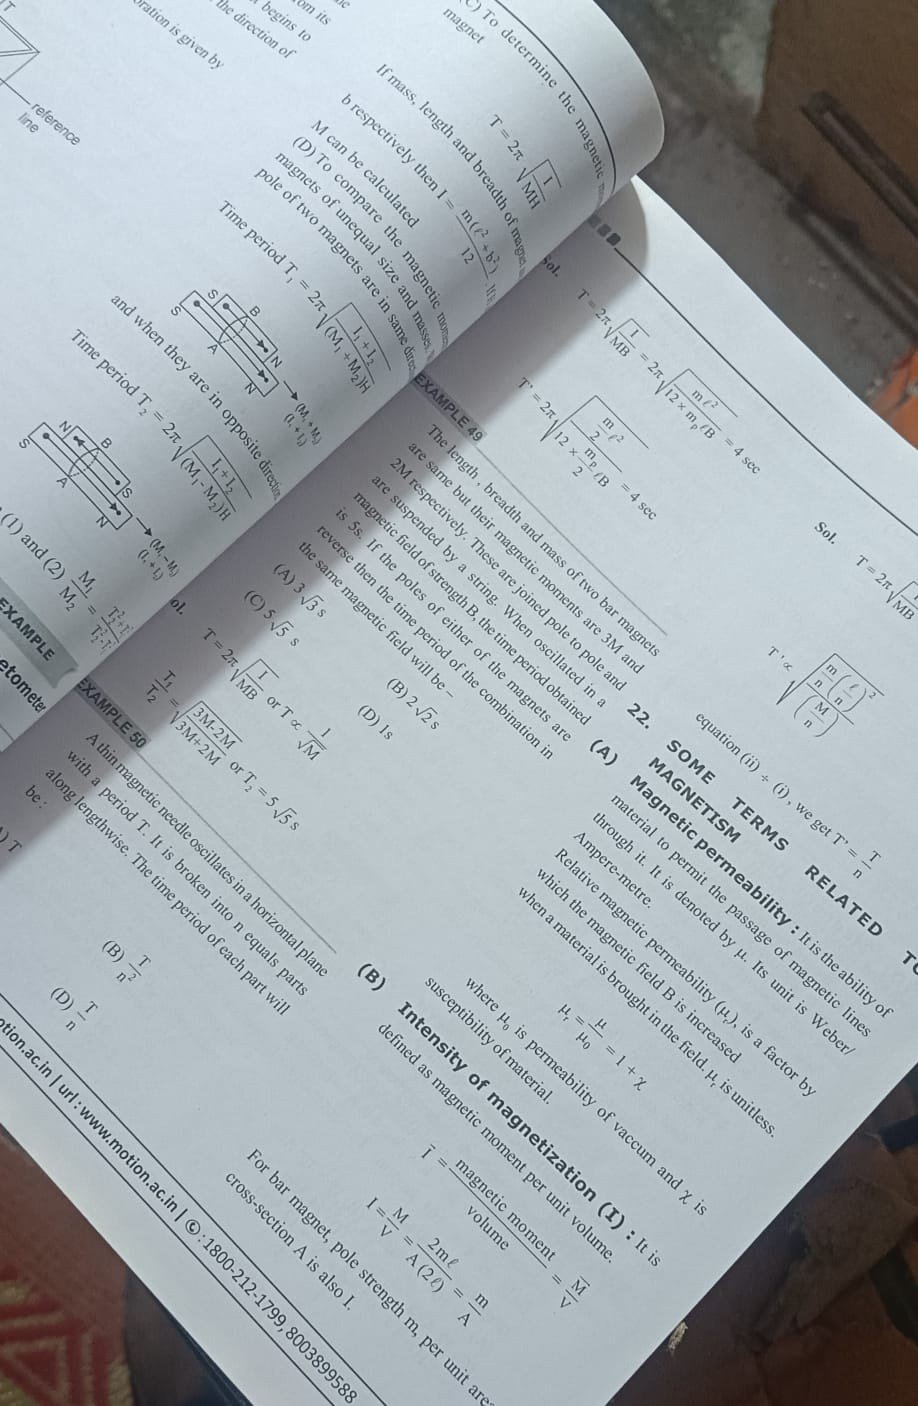 reference
line
oration is given by
the direction of
begins to
om its
(C) To determine the magnetic
magnet
T = 2π √(I / MH)
If mass, length and breadth of magnet
b respectively then I = m(ℓ² + b²) / 12 .
M can be calculated
(D) To compare the magnetic
magnets of unequal size and masses,
pole of two magnets are in same
Time period T₁ = 2π √((I₁ + I₂) / (M₁ + M₂)H)
S
S
B
A
N
N
(M₁ + M₂)
(I₁ + I₂)
and when they are in opposite direction
Time period T₂ = 2π √((I₁ + I₂) / (M₁ - M₂)H)
N
S
B
A
S
N
(M₁ - M₂)
(I₁ + I₂)
(1) and (2)
EXAMPLE
etometer
) T
be :
Sol.
T = 2π √(I / MB) = 2π √(mℓ² / 12 × mₚℓB) = 4 sec
T' = 2π √((m/2)ℓ² / 12 × (mₚ/2)ℓB) = 4 sec
EXAMPLE 49
The length , breadth and mass of two bar magnets
are same but their magnetic moments are 3M and
2M respectively. These are joined pole to pole and
are suspended by a string. When oscillated in a
magnetic field of strength B, the time period obtained
is 5s. If the poles of either of the magnets are
reverse then the time period of the combination in
the same magnetic field will be –
(A) 3√3 s
(B) 2√2 s
(C) 5√5 s
(D) 1s
ol.
T = 2π √(I / MB) or T ∝ 1 / √M
T₁ / T₂ = √((3M-2M) / (3M+2M)) or T₂ = 5√5 s
EXAMPLE 50
A thin magnetic needle oscillates in a horizontal plane
with a period T. It is broken into n equals parts
along lengthwise. The time period of each part will
(B) T / n²
(D) T / n
Sol.
T = 2π
equation (ii) ÷ (i) , we get T' = T / n
22. SOME TERMS RELATED TO
MAGNETISM
(A) Magnetic permeability : It is the ability of
material to permit the passage of magnetic lines
through it. It is denoted by μ. Its unit is Weber/
Ampere-metre.
Relative magnetic permeability (μᵣ), is a factor by
which the magnetic field B is increased
when a material is brought in the field. μᵣ is unitless.
μᵣ = μ / μ₀ = 1 + χ
where μ₀ is permeability of vaccum and χ is
susceptibility of material.
(B) Intensity of magnetization (I) : It is
defined as magnetic moment per unit volume.
I = magnetic moment / volume = M / V
I = M / V = 2mℓ / A(2ℓ) = m / A
For bar magnet, pole strength m, per unit area
cross-section A is also I.
otion.ac.in | url : www.motion.ac.in | ✆ : 1800-212-1799, 8003899588